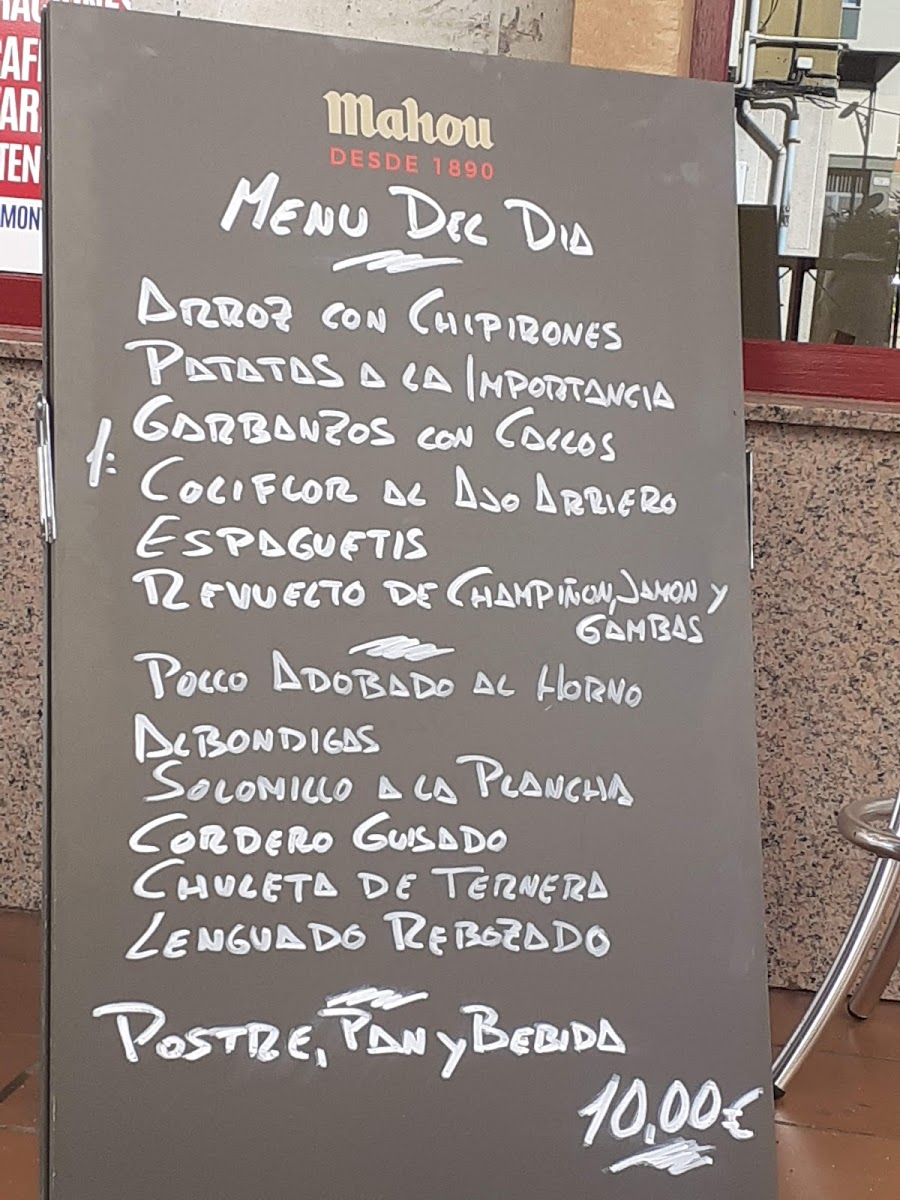 Mahou
DESDE 1890
MENU DEL DIA
ARROZ CON CHIPIRONES
PATATAS A LA IMPORTANCIA
1: GARBANZOS CON CALLOS
COLIFLOR AL AJO ARRIERO
ESPAGUETIS
REVUELTO DE CHAMPIÑON, JAMON Y
GAMBAS
POLLO ADOBADO AL HORNO
ALBONDIGAS
SOLOMILLO A LA PLANCHA
CORDERO GUISADO
CHULETA DE TERNERA
LENGUADO REBOZADO
POSTRE, PAN Y BEBIDA
10,00€